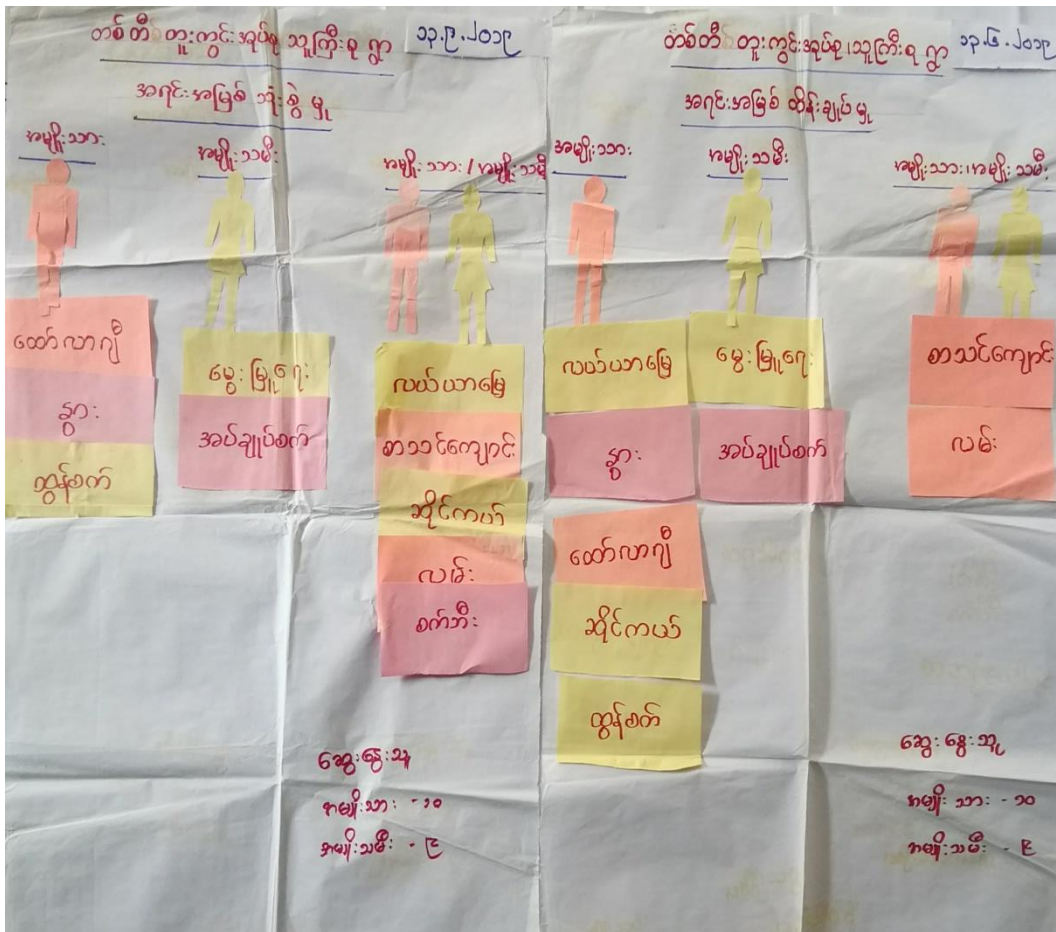 တစ်တီတူးကွင်းအုပ်စု သူကြီးစု ရွာ
၁၃.၉.၂၀၁၉
အရင်းအမြစ် သုံးစွဲ မှု
အမျိုးသား
အမျိုးသမီး
အမျိုးသား / အမျိုးသမီး
ထော်လာဂျီ
နွား
ထွန်စက်
မွေးမြူရေး
အပ်ချုပ်စက်
လယ်ယာမြေ
စာသင်ကျောင်း
ဆိုင်ကယ်
လမ်း
စက်ဘီး
ဆွေးနွေးသူ
အမျိုးသား - ၁၀
အမျိုးသမီး - ၉
တစ်တီတူးကွင်းအုပ်စု၊ သူကြီးစု ရွာ
၁၃.၆.၂၀၁၉
အရင်းအမြစ် ထိန်းချုပ် မှု
အမျိုးသား
အမျိုးသမီး
အမျိုးသား၊အမျိုးသမီး
လယ်ယာမြေ
နွား
ထော်လာဂျီ
ဆိုင်ကယ်
ထွန်စက်
မွေးမြူရေး
အပ်ချုပ်စက်
စာသင်ကျောင်း
လမ်း
ဆွေးနွေးသူ
အမျိုးသား - ၁၀
အမျိုးသမီး - ၉